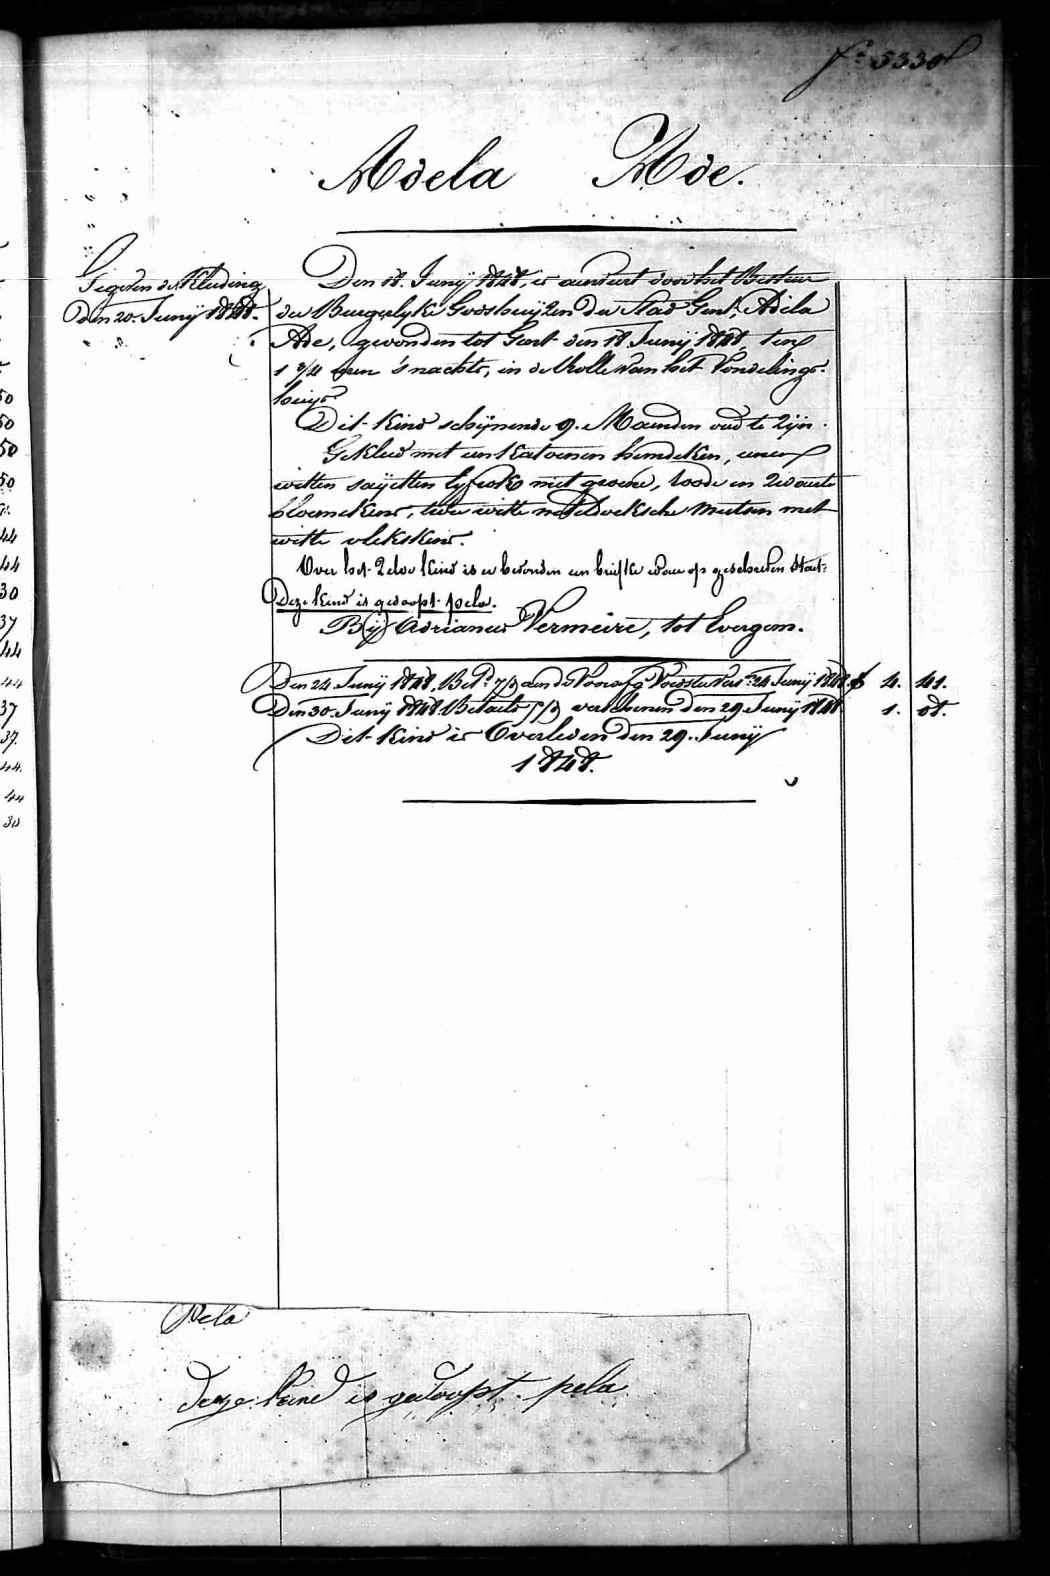 Adela Ade.
Gegeven de Kleeding
den 20. Junij 1848.
Den 18. Junij 1848, is aenveert door het Bestuur
der Burgerlyke Godshuijzen der Stad Gent, Adela
Ade, gevonden tot Gent den 18 Junij 1848, ten
1 3/4 uren 's nachts, in de Rolle van het Vondelings-
huys.
Dit Kind schijnende 9. Maenden oud te zijn.
Gekleed met een Katoenen hemdeken, eenen
witten saijetten lyfrok met groene, roode en zwarte
bloemekens, twee witte neteldoeksche mutsen met
witte vlekskens.
Over het zelve kind is er bevonden een briefke waer op geschreven staet:
Deze kind is gedoopt pela.
Bij Adrianus Vermeire, tot Evergem.
Den 24 Junij 1848, Bet. 7/9 aen de Voedster 24 Junij 1848. 4. 41.
Den 30. Junij 1848. Betaeld verschenen den 29 Junij 1848 1. 08.
Dit Kind is Overleden den 29. Junij
1848.
Pela
deze kind is gedoopt pela
50
50
50
50
44
44
30
37
44
44
37
37.
44.
44
30